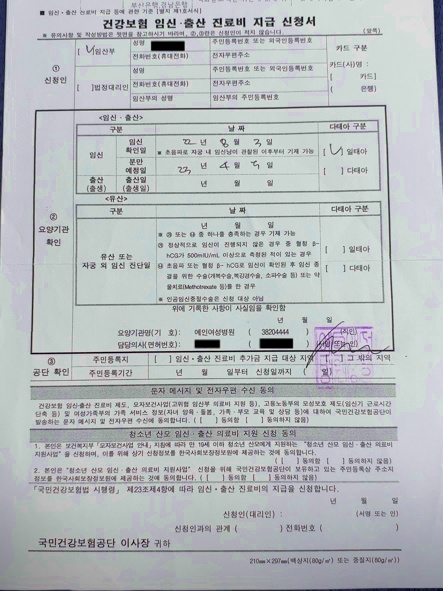 부산은행,경남은행
■ 임신·출산 진료비 지급 등에 관한 기준 [별지 제1호서식]
건강보험 임신·출산 진료비 지급 신청서
※ 유의사항 및 작성방법은 뒷면을 참고하시기 바라며, ②,③란은 신청인이 적지 않습니다. (앞쪽)
① 신청인
[ √ ]임산부
성명
주민등록번호 또는 외국인등록번호
카드 구분
전화번호(휴대전화)
전자우편주소
카드(사)명 :
[ ]법정대리인
성명
주민등록번호 또는 외국인등록번호
[ 카드]
전화번호(휴대전화)
전자우편주소
( 은행)
임산부의 성명
임산부의 주민등록번호
② 요양기관 확인
<임신·출산>
구분
날 짜
다태아 구분
임신
임신 확인일
22 년 8 월 3 일
※ 초음파로 자궁 내 임신낭이 관찰된 이후부터 기재 가능
[ √ ] 일태아
분만 예정일
23 년 4 월 5 일
[ ] 다태아
출산 (출생)
출산일 (출생일)
년 월 일
<유산>
구분
날 짜
다태아 구분
유산 또는 자궁 외 임신 진단일
년 월 일
※ ㉮ 또는 ㉯ 중 하나를 충족하는 경우 기재 가능
㉮ 정상적으로 임신이 진행되지 않은 경우 중 혈링 β-
hCG가 500mIU/mL 이상으로 측정된 적이 있는 경우
[ ] 일태아
㉯ 초음파 또는 혈링 β- hCG로 임신이 확인된 후 임신 종
결을 위한 수술(개복수술,복강경수술, 소파수술 등) 또는 약
물치료(Methotrexate 등)를 한 경우
[ ] 다태아
※ 인공임신중절수술은 신청 대상 아님
위에 기록한 사항이 사실임을 확인함
년 월 일
요양기관명(기 호): 예인여성병원 ( 38204444 ) (직인)
담당의사(면허번호): (서명 또는 인)
③ 공단 확인
주민등록지
[ ] 임신·출산 진료비 추가금 지급 대상 지역 [ ] 그 밖의 지역
주민등록기간
년 월 일부터 신청일까지 ( 일)
문자 메시지 및 전자우편 수신 동의
건강보험 임신·출산 진료비, 모자보건사업(고위험 임산부 의료비 지원 등), 고용노동부의 모성보호 제도(임신기 근로시간
단축 등) 및 여성가족부의 가족 서비스 정보(자녀 양육·돌봄, 가족·부모 교육 및 상담 등)에 대하여 국민건강보험공단이
발송하는 문자 메시지 및 전자우편 수신에 ( [ ] 동의함 [ ] 동의하지 않음)
청소년 산모 임신·출산 의료비 지원 신청 동의
1. 본인은 보건복지부 「모자보건사업 안내」 지침에 따라 만 19세 이하 청소년 산모에게 지원하는 "청소년 산모 임신·출산 의료비
지원사업"을 신청하며, 이를 위해 상기 신청정보를 한국사회보장정보원에 제공하는 것에 동의합니다.
( [ ] 동의함 [ ] 동의하지 않음)
2. 본인은 "청소년 산모 임신·출산 의료비 지원사업" 신청을 위해 국민건강보험공단이 보유하고 있는 주민등록상 주소지
정보를 한국사회보장정보원에 제공하는 것에 동의합니다. ( [ ] 동의함 [ ] 동의하지 않음)
「국민건강보험법 시행령」 제23조제4항에 따라 임신·출산 진료비의 지급을 신청합니다.
년 월 일
신청인(대리인) : (서명 또는 인)
신청인과의 관계 ( ) 전화번호 ( )
국민건강보험공단 이사장 귀하
210㎜×297㎜(백상지(80g/㎡) 또는 중질지(80g/㎡))